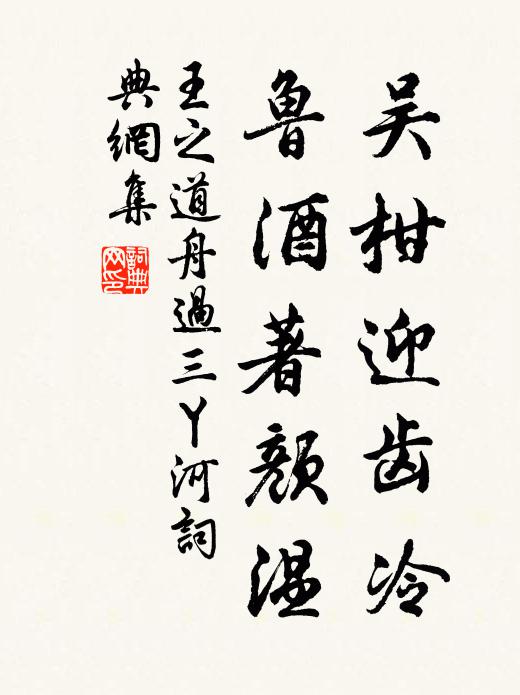 吴柑迎齿冷
鲁酒著颜温
王之道舟過三丫河詞
典網集
詞典网印